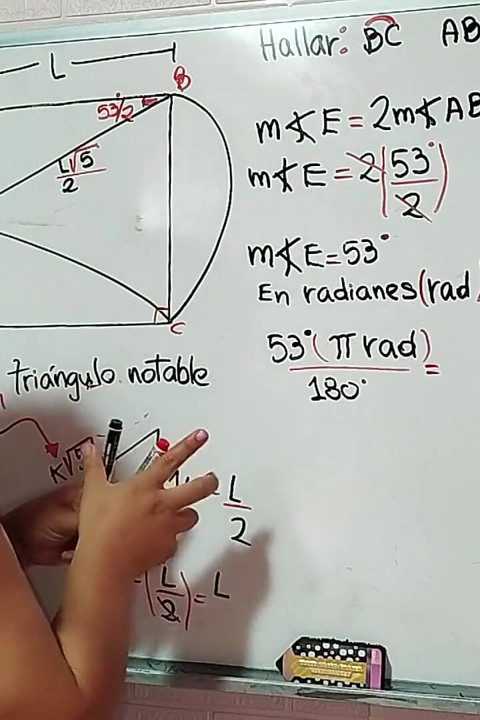 Hallar: BC AB
L
B
53°/2
L√5/2
C
m∡E = 2m∡AB
m∡E = 2(53°/2)
m∡E = 53°
En radianes (rad
53°(π rad)/180° =
triángulo notable
K√5
= L/2
(L/2) = L